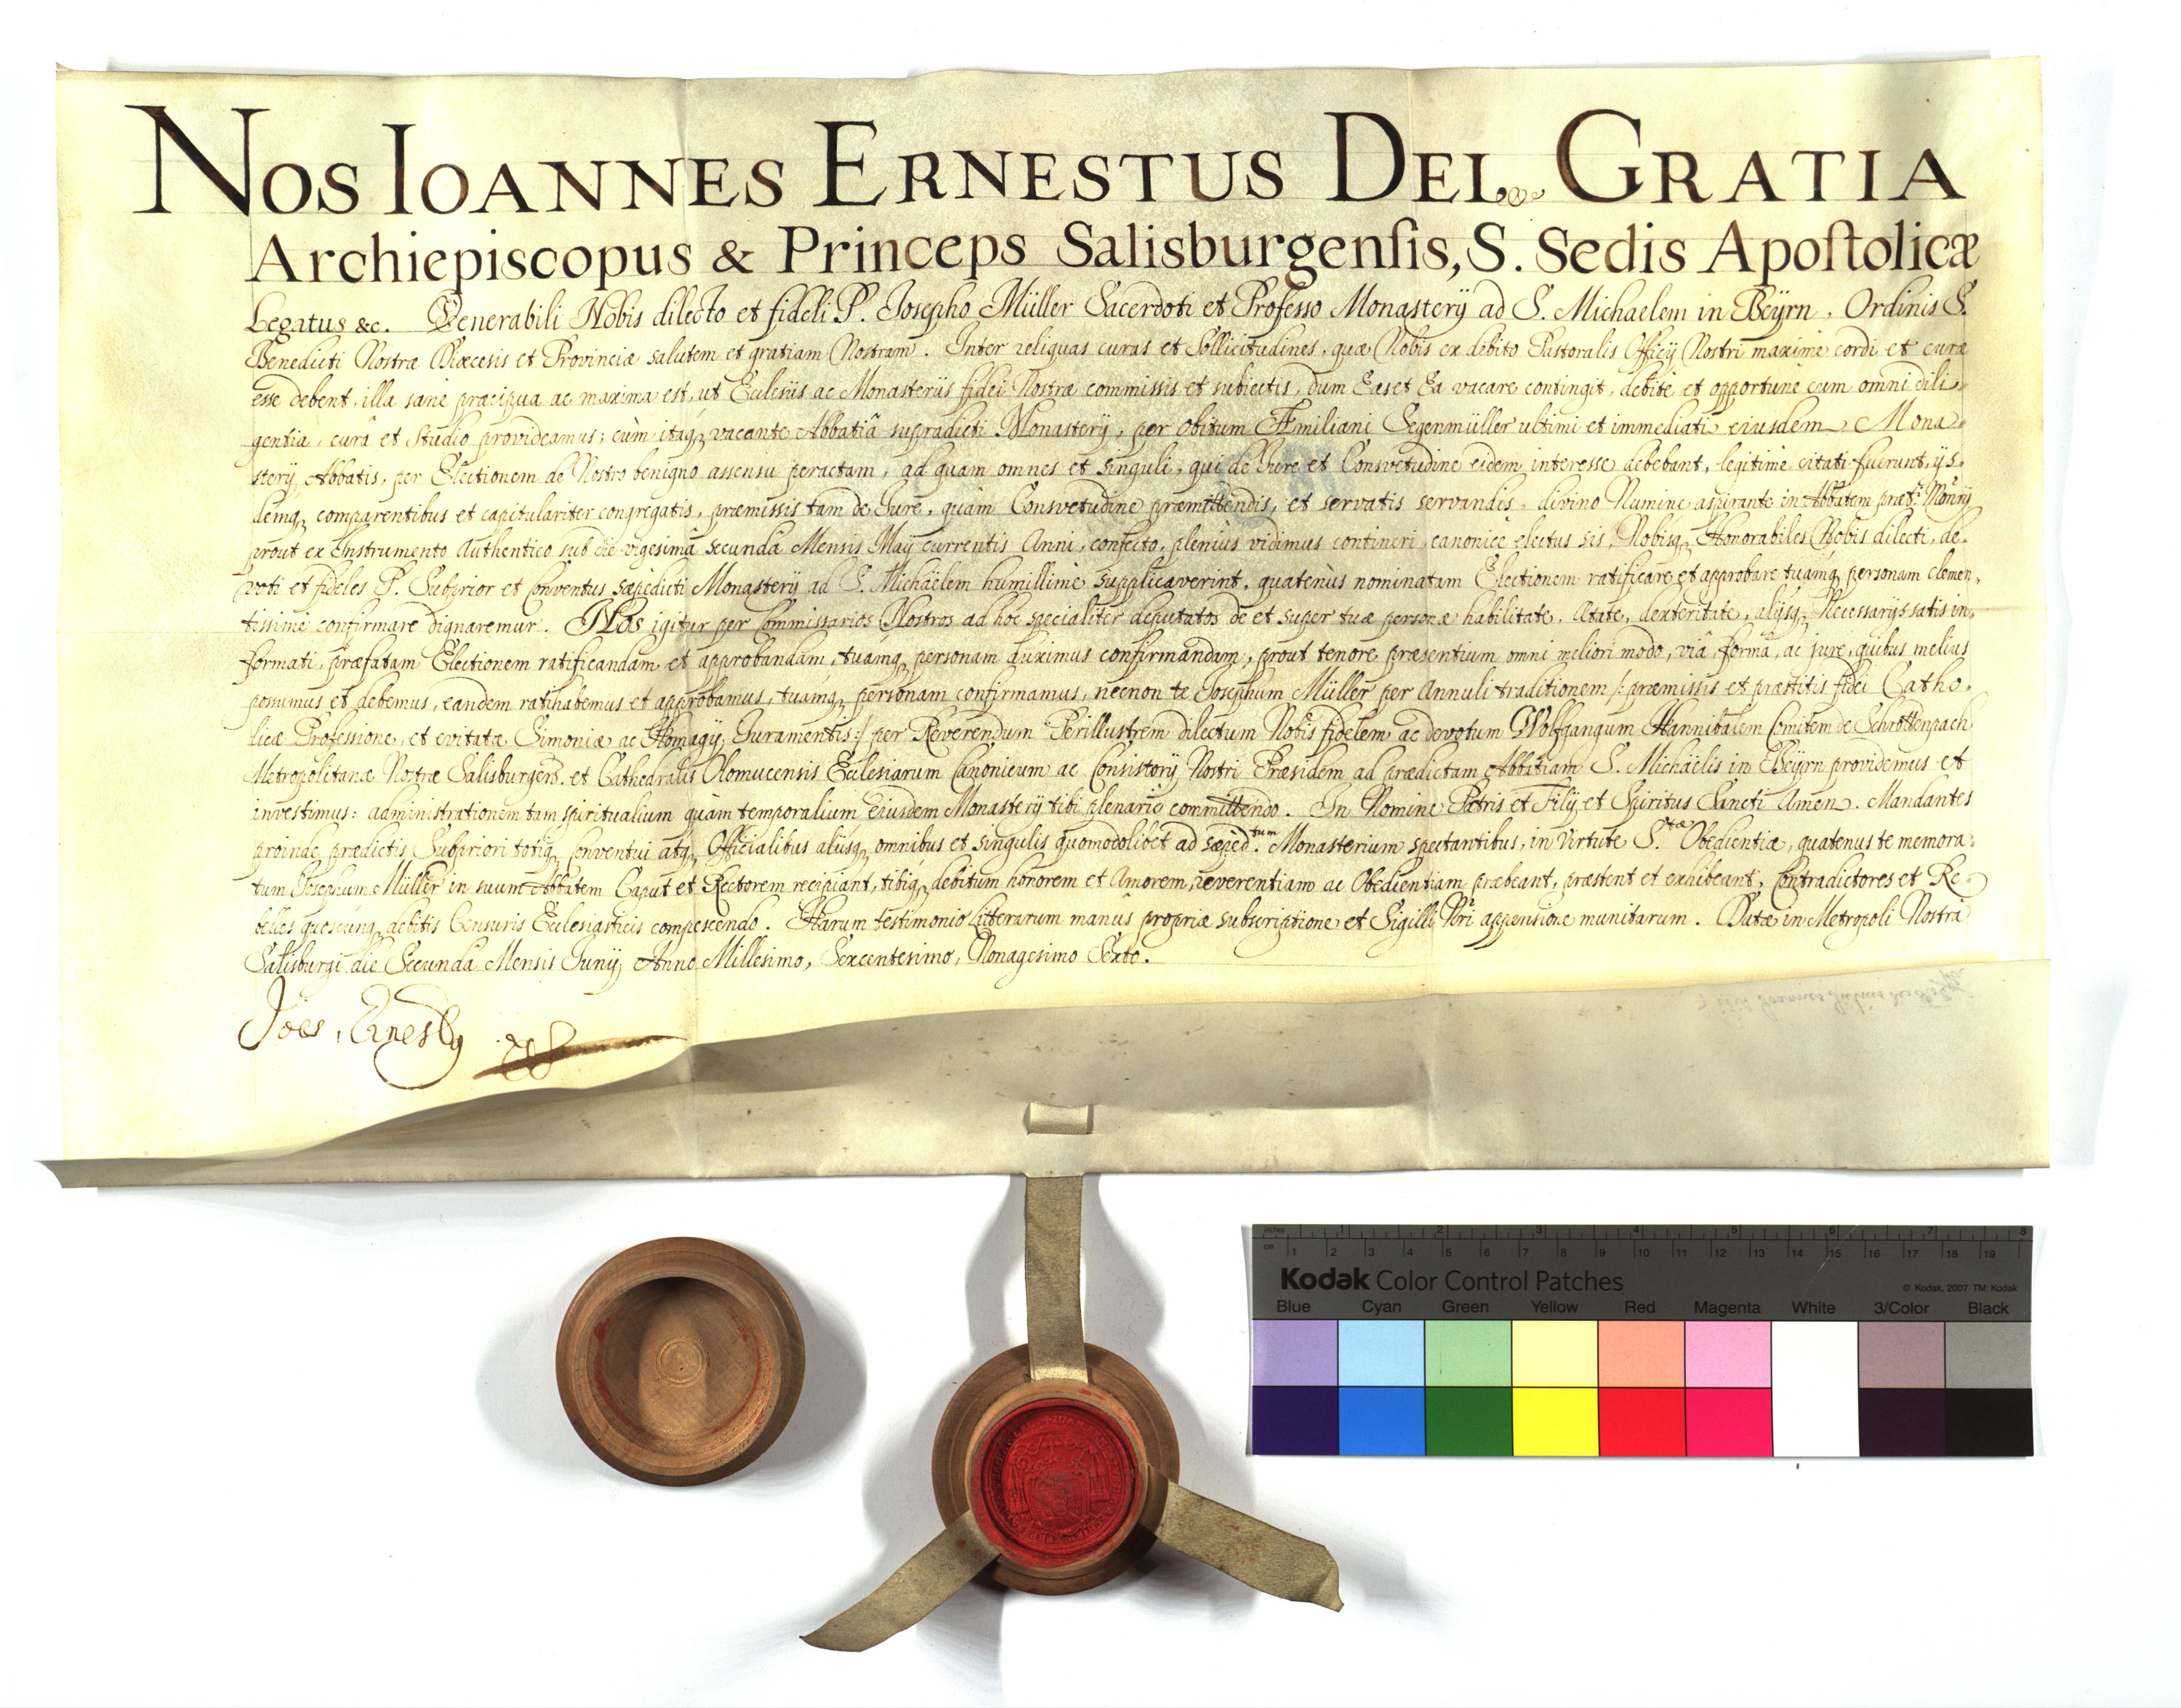 NOS IOANNES ERNESTUS DEI GRATIA
Archiepiscopus & Princeps Salisburgensis, S. Sedis Apostolicæ
Legatus &c. Venerabili Nobis dilecto et fideli P. Josepho Müller Sacerdoti et Professo Monasterÿ ad S. Michaelem in Beÿrn, Ordinis S.
Benedicti Nostræ Diœcesis et Provinciæ salutem et gratiam Nostram. Inter reliquas curas et Sollicitudines, quæ Nobis ex debito Pastoralis Officÿ Nostri maxime cordi et curæ
esse debent, illa sane præcipua ac maxima est, ut Ecclesiis ac Monasteriis fidei Nostræ commissis et subiectis, dum Eas et Ea vacare contingit, debite et opportune cum omni dili=
gentia, curâ et Studio provideamus; cùm itaq; vacante Abbatiâ supradicti Monasterÿ, per obitum Æmiliani Segenmüller ultimi et immediati eiusdem Mona=
sterÿ Abbatis, per Electionem de Nostro benigno assensu peractam, ad quam omnes et singuli, qui de Jure et Consvetudine eidem interesse debebant, legitimè citati fuerunt, ÿs=
demq; comparentibus et capitulariter congregatis, præmissis tam de Jure, quàm Consvetudine præmittendis, et servatis servandis, divino Numine aspirante in Abbatem præt: Monrÿ
prout ex Instrumento Authentico sub die vigesimâ secundâ Mensis Maÿ currentis Anni, confecto, plenius vidimus contineri, canonicè electus sis, Nobisq; Honorabiles Nobis dilecti, de=
voti et fideles P. Subprior et Conventus sæpedicti Monasterÿ ad S. Michaëlem humillimè supplicaverint, quatenùs nominatam Electionem ratificare et approbare tuamq; personam clemen=
tissimè confirmare dignaremur. Nos igitur per Commissarios Nostros ad hoc specialiter deputatos de et super tuæ personæ habilitate, ætate, dexteritate, alÿsq; Necessarÿs satis in=
formati, præfatam Electionem ratificandam et approbandam, tuamq; personam duximus confirmandam, prout tenore præsentium omni meliori modo, viâ, formâ, ac jure, quibus melius
possumus et debemus, eandem ratihabemus et approbamus, tuamq; personam confirmamus, necnon te Josephum Müller per Annuli traditionem /: præmissis et præstitis fidei Catho=
licæ Professione, et evitatæ Simoniæ ac Homagÿ Juramentis :/ per Reverendum Perillustrem dilectum Nobis fidelem ac devotum Wolffgangum Hannibalem Comitem de Schrottenpach
Metropolitanæ Nostræ Salisburgens. et Cathedralis Olomucensis Ecclesiarum Canonicum ac Consistorÿ Nostri Præsidem ad prædictam Abbatiam S. Michaëlis in Beÿrn providemus et
investimus: administrationem tam spiritualium quàm temporalium eiusdem Monasterÿ tibi plenariè committendo. In Nomine Patris et Filÿ et Spiritus Sancti Amen. Mandantes
proinde prædictis Subpriori totiq; Conventui atq; Officialibus aliisq; omnibus et singulis quomodolibet ad sæped:tum Monasterium spectantibus, in Virtute S.tæ Obedientiæ, quatenus te memora=
tum Josephum Müller in suum Abbatem Caput et Rectorem recipiant, tibiq; debitum honorem et Amorem, reverentiam ac Obedientiam præbeant, præstent et exhibeant, Contradictores et Re=
belles quoscunq; debitis Censuris Ecclesiasticis compescendo. Harum testimonio Litterarum manûs propriæ subscriptione et Sigilli Nri appensione munitarum. Datæ in Metropoli Nostra
Salisburgi die Secunda Mensis Junÿ Anno Millesimo, Sexcentesimo, Nonagesimo Sexto.
Joës Ernestg
inches 1 2 3 4 5 6 7 8
cm 1 2 3 4 5 6 7 8 9 10 11 12 13 14 15 16 17 18 19
Kodak Color Control Patches
© Kodak, 2007 TM: Kodak
Blue Cyan Green Yellow Red Magenta White 3/Color Black